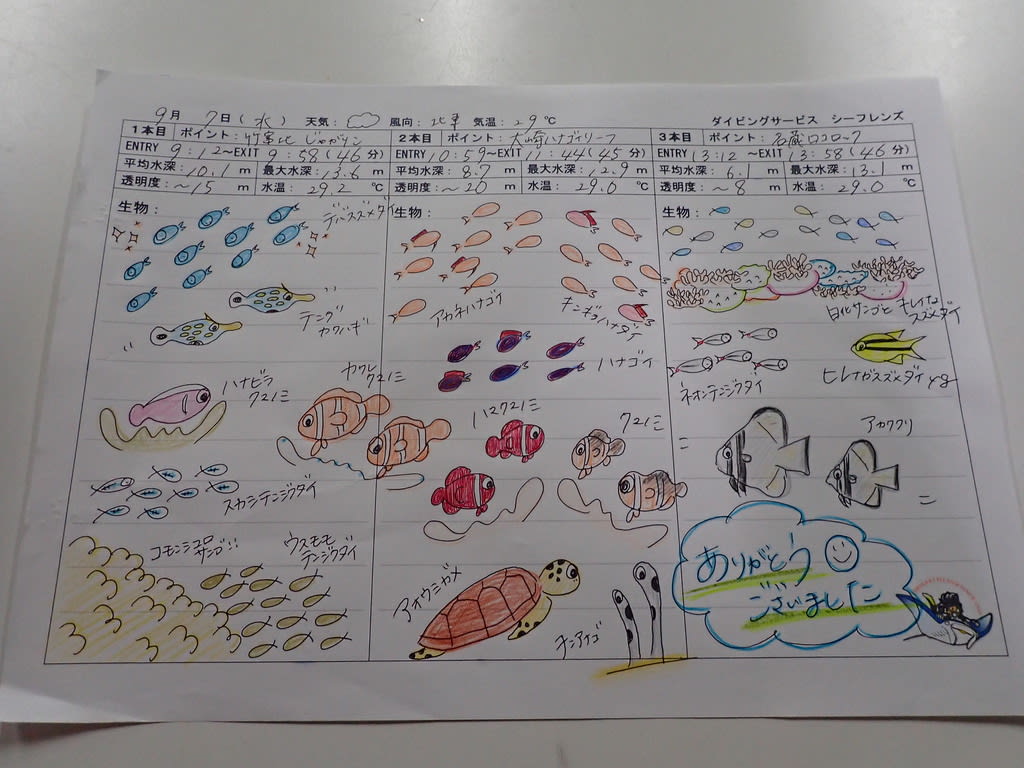 9月 7日(水) 天気: 風向:北東 気温:29℃ ダイビングサービス シーフレンズ
1本目 ポイント:竹富北 じゃがリン
ENTRY 9:12~EXIT 9:58(46分)
平均水深:10.1m 最大水深:13.6m
透明度:~15m 水温:29.2℃
生物:
デバスズメダイ
テングカワハギ
ハナビラクマノミ
カクレクマノミ
スカシテンジクダイ
コモンシコロサンゴ!!
ウスモモテンジクダイ
2本目 ポイント:大崎ハナゴイリーフ
ENTRY 10:59~EXIT 11:44(45分)
平均水深:8.7m 最大水深:12.9m
透明度:~20m 水温:29.0℃
生物:
アカネハナゴイ
キンギョハナダイ
ハナゴイ
ハマクマノミ
クマノミ
アオウミガメ
チンアナゴ
3本目 ポイント:名蔵ロロロック
ENTRY 13:12~EXIT 13:58(46分)
平均水深:6.1m 最大水深:13.1m
透明度:~8m 水温:29.0℃
生物:
白化サンゴとキレイなスズメダイ
ネオンテンジクダイ
ヒレナガスズメダイyg
アカククリ
ありがとう
ございました